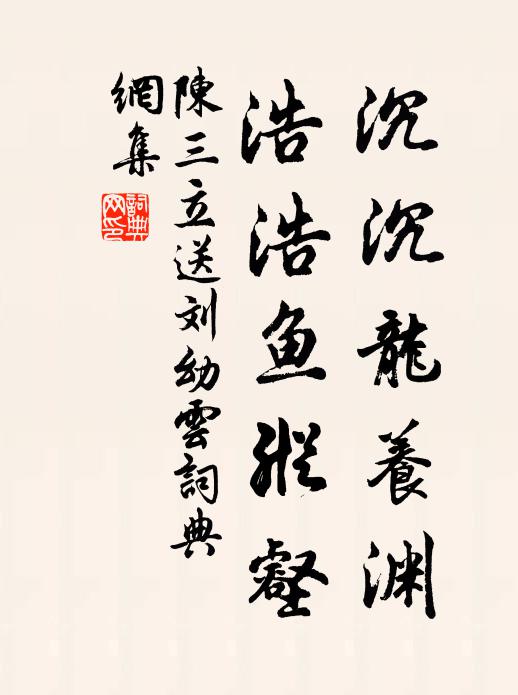 沉沉龍養渊
浩浩鱼縱壑
陳三立送刘幼雲詞典
網集
詞典网印